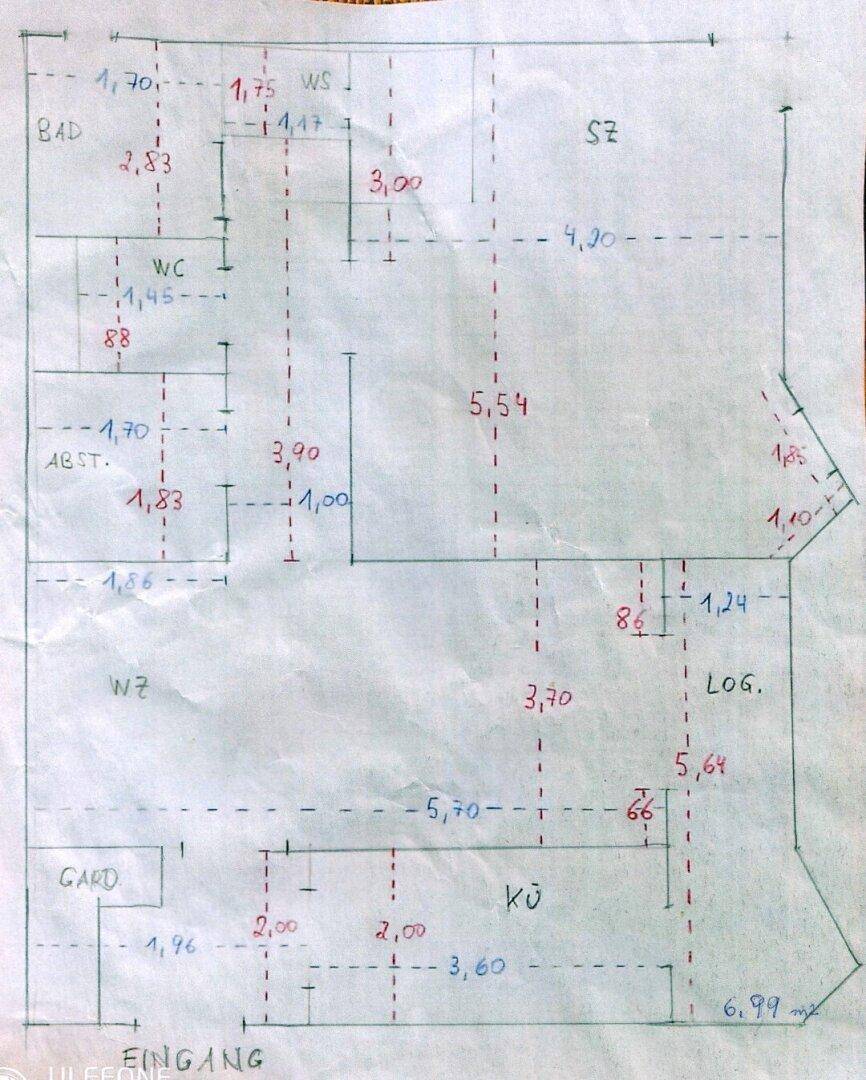 1,70
1,75
WS
BAD
1,17
SZ
2,83
3,00
4,20
WC
1,45
88
5,54
1,70
3,90
1,85
ABST.
1,83
1,00
1,10
1,86
1,24
86
WZ
3,70
LOG.
5,64
5,70
66
GARD.
KÜ
2,00
2,00
1,96
3,60
6,99 m²
EINGANG
ULEFONE